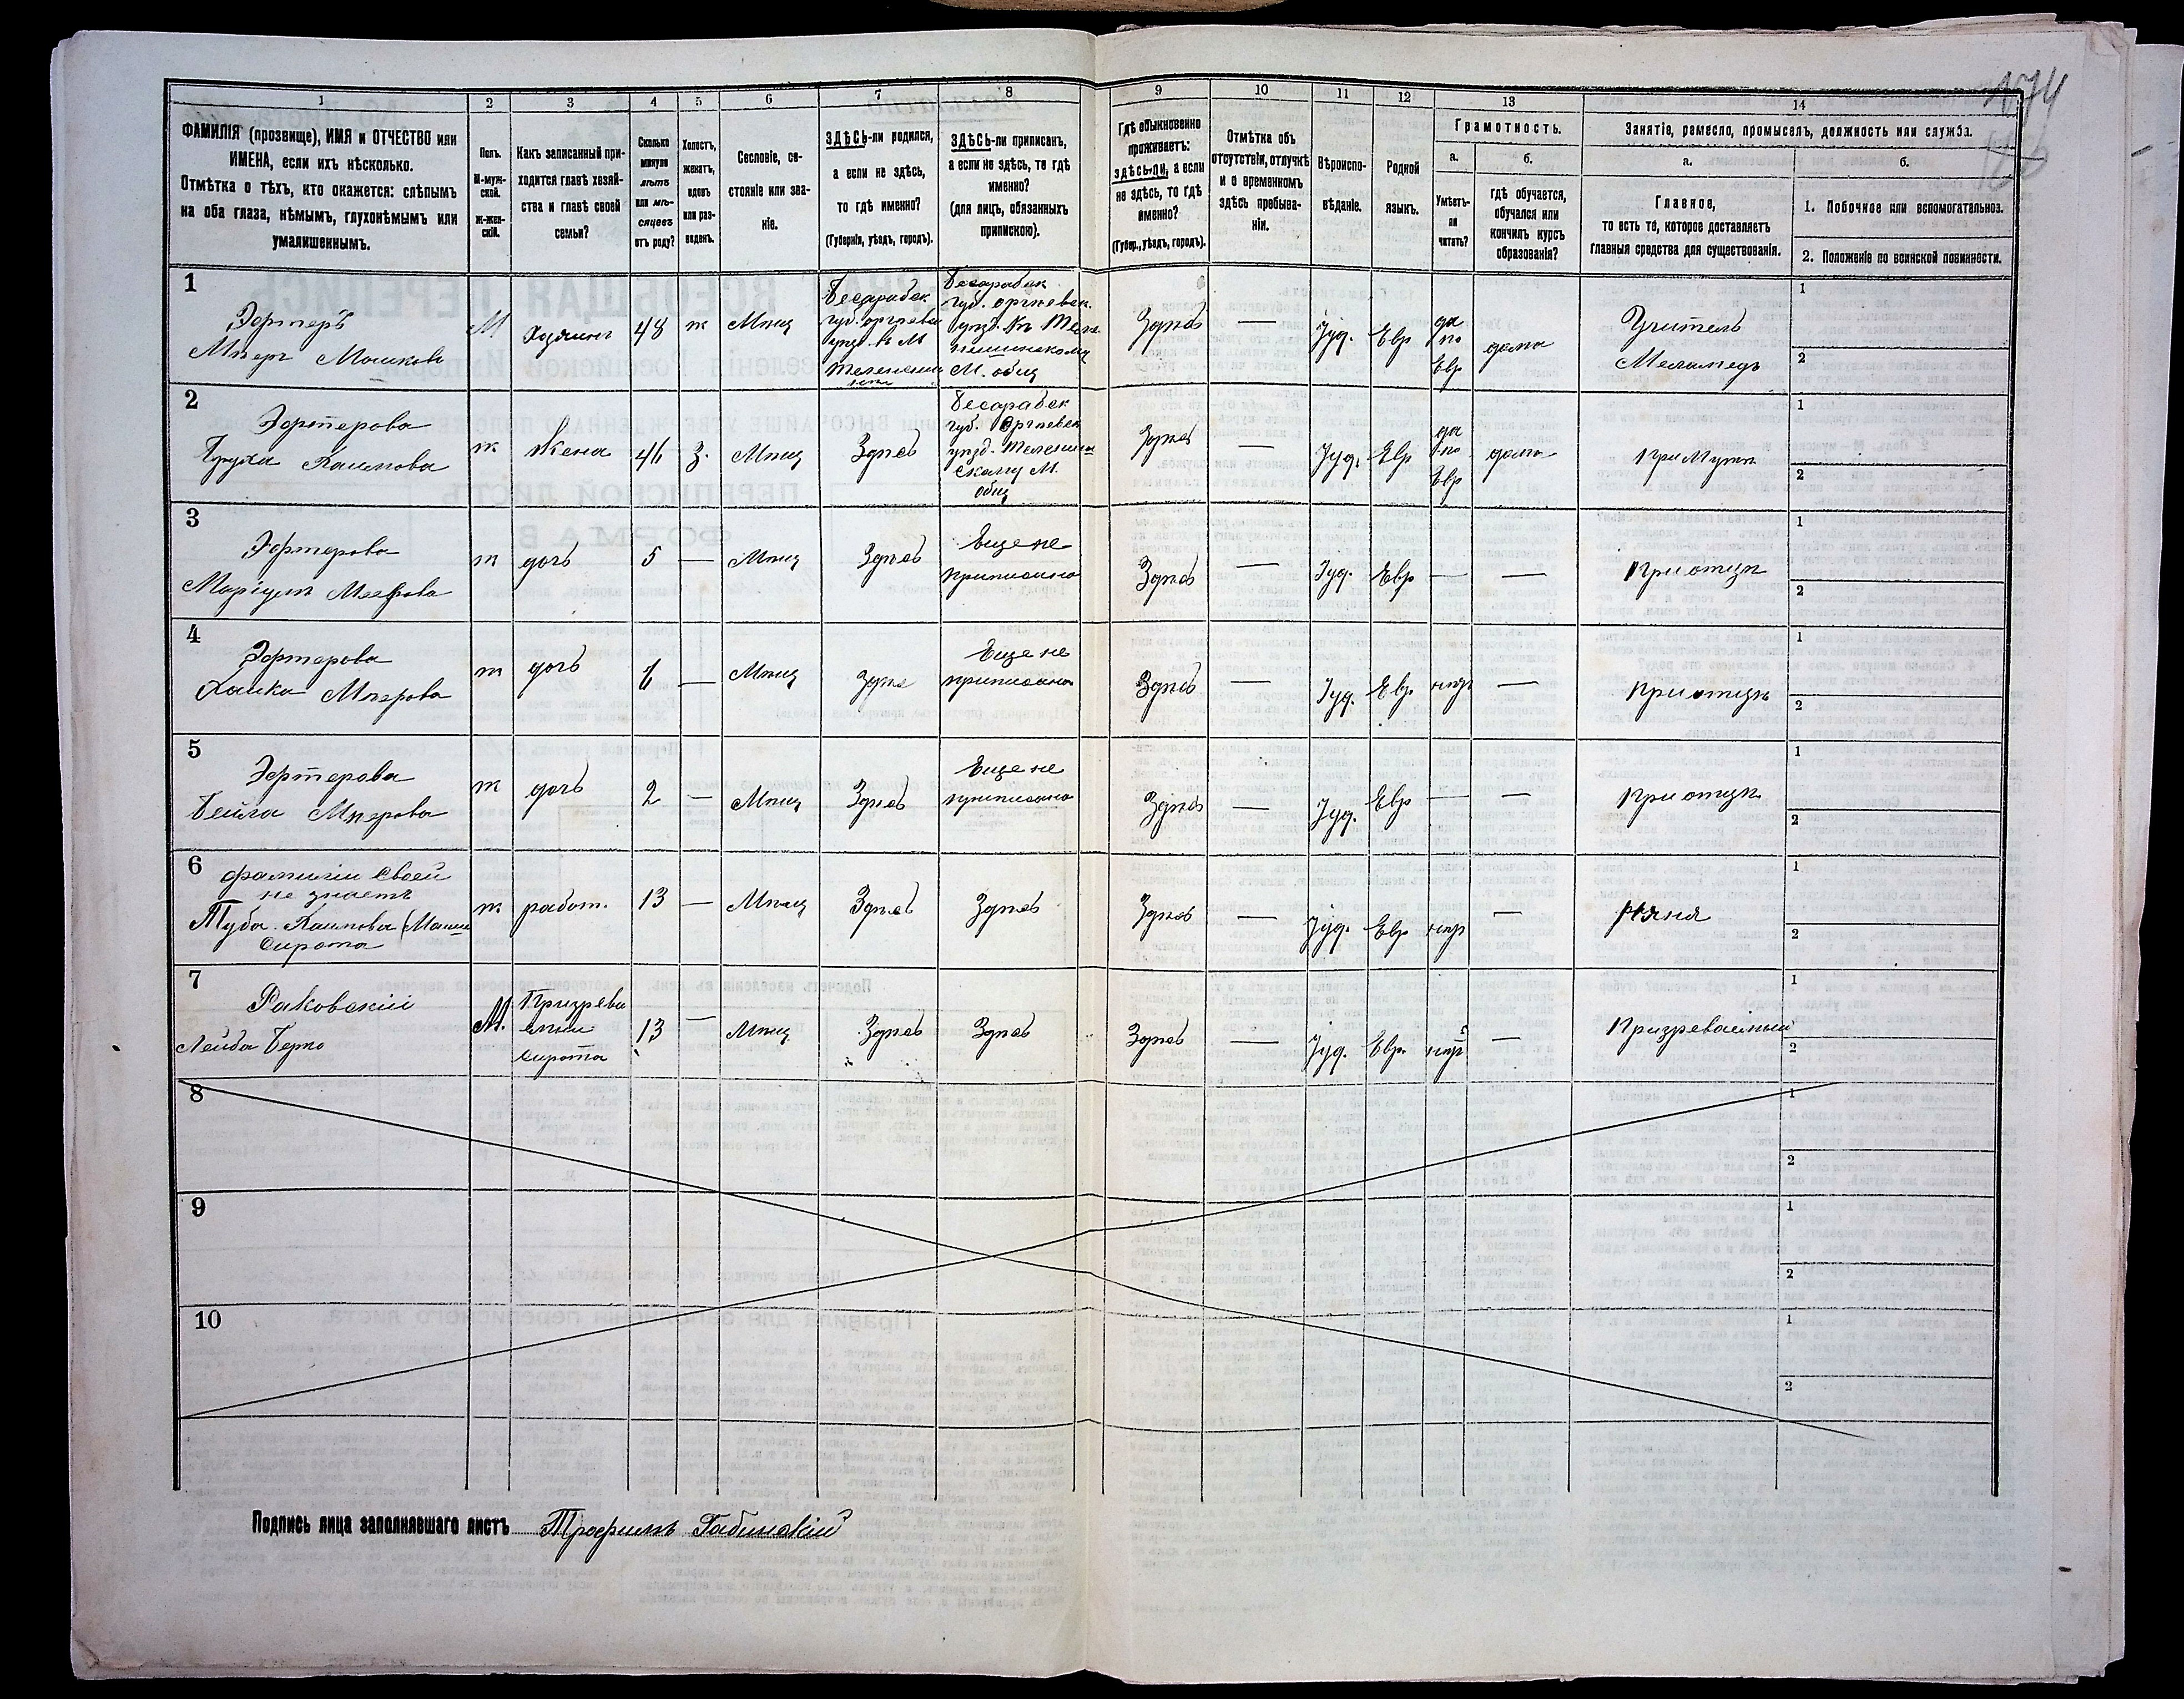 174
1 2 3 4 5 6 7 8 9 10 11 12 13 14
ФАМИЛІЯ (прозвище), ИМЯ и ОТЧЕСТВО или
ИМЕНА, если ихъ нѣсколько.
Отмѣтка о тѣхъ, кто окажется: слѣпымъ
на оба глаза, нѣмымъ, глухонѣмымъ или
умалишеннымъ.
Полъ.
М-муж-
ской.
Ж-жен-
скій.
Какъ записанный при-
ходится главѣ хозяй-
ства и главѣ своей
семьи?
Сколько
минуло
лѣтъ
или мѣ-
сяцевъ
отъ роду?
Холостъ,
женатъ,
вдовъ
или раз-
веденъ.
Сословіе, со-
стояніе или зва-
ніе.
ЗДѢСЬ-ли родился,
а если не здѣсь,
то гдѣ именно?
(Губернія, уѣздъ, городъ).
ЗДѢСЬ-ли приписан,
а если не здѣсь, то гдѣ
именно?
(для лицъ, обязанныхъ
припискою).
Гдѣ обыкновенно
проживаетъ:
здѣсь-ли, а если
не здѣсь, то гдѣ
именно?
(Губер., уѣздъ, городъ).
Отмѣтка объ
отсутствіи, отлучкѣ
и о временномъ
здѣсь пребыва-
ніи.
Вѣроиспо-
вѣданіе.
Родной
языкъ.
Грамотность.
а.
Умѣетъ-
ли
читать?
б.
гдѣ обучается,
обучался или
кончилъ курсъ
образованія?
Занятіе, ремесло, промыселъ, должность или служба.
а.
Главное,
то есть то, которое доставляетъ
главныя средства для существованія.
б.
1. Побочное или вспомогательное.
2. Положеніе по воинской повинности.
1
Эфтеръ
Мѣеръ Мошковъ
М
Хозяинъ
48
ж
Мѣщ
Бесарабск
губ. оргѣевск
уѣзд. в М
Бесарабск
губ. оргѣевск.
уѣзд. Къ
М. общ
Здѣсь
—
Іуд.
Евр
да
по
Евр
дома
Учитель
Меламедъ
1
2
2
Эфтерова
Хаимова
ж
Жена
46
З.
Мѣщ
Здѣсь
Бесарабск
губ. Оргѣевск
уѣзд. Теленеш
скому М.
общ
Здѣсь
—
Іуд.
Евр
да
по
Евр
дома
при Мужѣ
1
2
3
Эфтерова
Меерова
ж
дочь
5
—
Мѣщ
Здѣсь
Еще не
приписана
Здѣсь
—
Іуд.
Евр
—
—
При отцѣ
1
2
4
Эфтерова
Хайка Мѣерова
ж
дочь
—
Мѣщ
здѣсь
Еще не
приписана
Здѣсь
—
Іуд.
Евр
—
При отцѣ
1
2
5
Эфтерова
Бейла Мѣерова
ж
дочь
2
—
Мѣщ
Здѣсь
Еще не
приписана
Здѣсь
—
Іуд.
Евр
—
—
При отцѣ
1
2
6
фамиліи своей
не знаетъ
Туба Хаимова
Сирота
ж
работ.
13
—
Мѣщ
Здѣсь
Здѣсь
Здѣсь
—
Іуд.
Евр
—
няня
1
2
7
Раковскій
Лейба Берко
М.
Призрева
емый
сирота
13
—
Мѣщ
Здѣсь
Здѣсь
Здѣсь
—
Іуд.
Евр.
—
Призреваемый
1
2
8
1
2
9
1
2
10
1
2
Подпись лица заполнявшаго листъ Трофимъ Габинскій